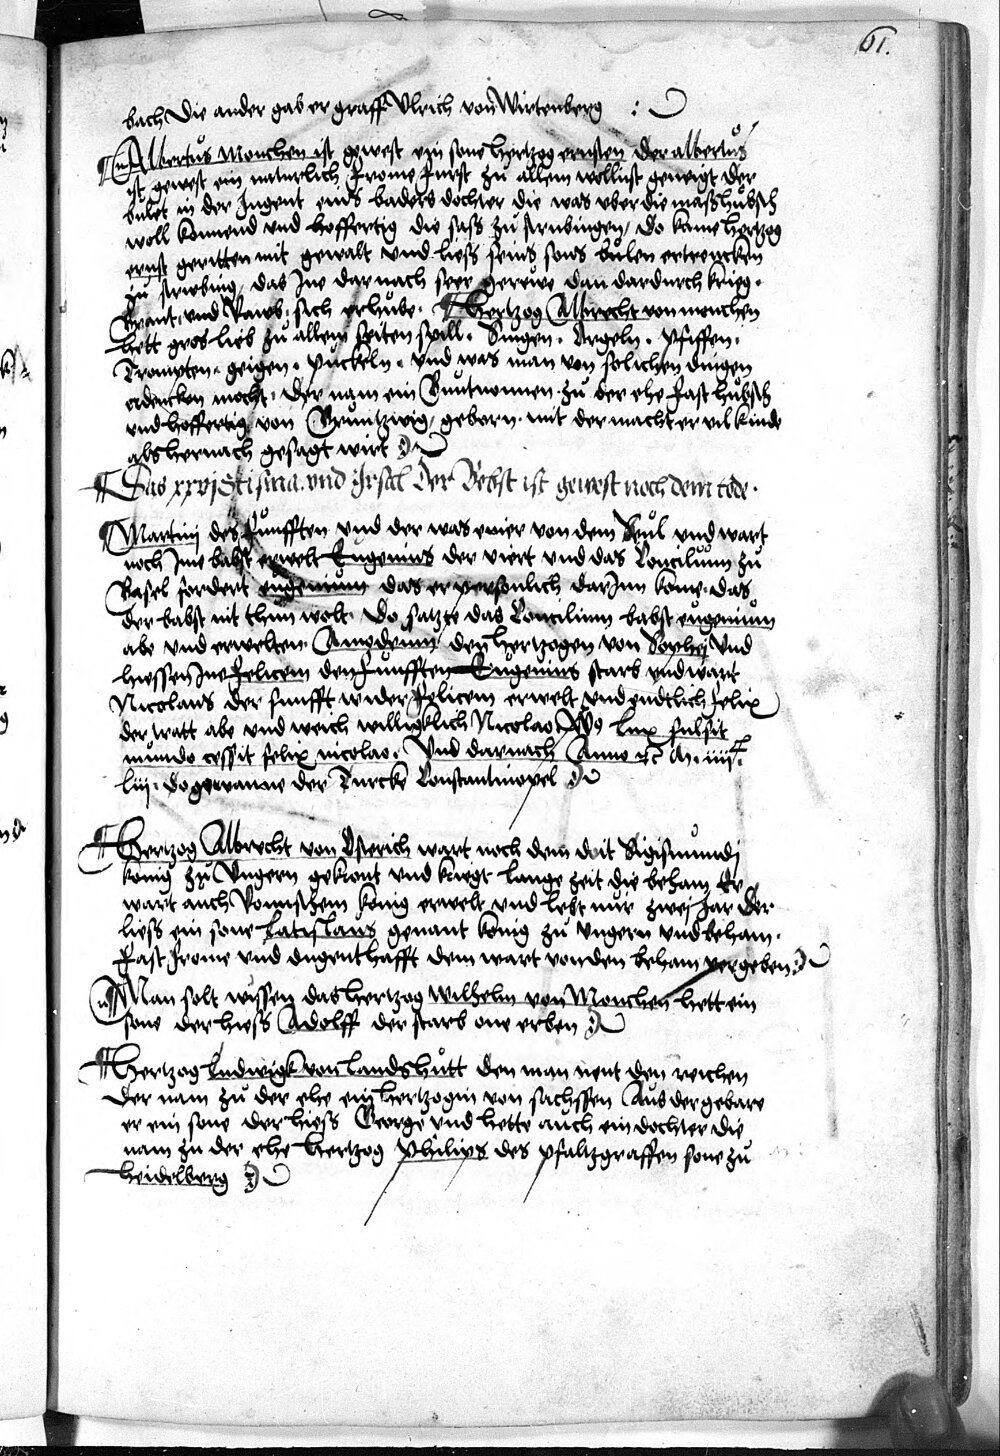 61.
bach Die ander gab er graff Ulrich von Wirtenberg :
Albertus Monchen ist gewest ein sone hertzog ernsten Der albertus
ist gewest ein naturlich frome furst zu allem wollust geneigt der
bulet in der Jugent eins baders dochter die was uber die mass hubsch
woll konnend und hoffertig die sass zu strubingen / do kame hertzog
ernst geritten mit gewalt und liess seins sons bulen ertrencken
zu strubing, das Ine darnach seer gerewe dan dardurch krieg.
Brant. und Rawb. sich erhube. Hertzog Albrecht von monchen
hett gros lieb zu allem seiten spill. Singen. Orgeln. Pfeiffen.
Trometen. geigen. puckeln. und was man von solichen dingen
erdencken mocht. Der nam ein zu der ehe fast hubsch
und hoffertig von Bruntzwig / geborn. mit der macht er vil kinde
als hernach gesagt wirt
Das xxvj und der Bebst ist gewest noch dem tode.
Martinj des funfften und der was einer von dem und wart
noch Ime babst erwelt Eugenius der viert und das Concilium zu
Basel fordert eugenium das er personlich darInn kome. das
der babst nit thun wolt. Do satzte das Concilium babst eugenium
abe und erwelten. Amedeum den hertzogen von Sophej Und
hiessen Ine felicem den funfften Eugenius starb und wart
Nicolaus der funfft wider felicem erwelt und endtlich felix
der tratt abe und weich willigklich Nicolao. lux fulsit
mundo cessit felix nicolao. Und darnach Anno
liij. do gewanne der Turcke Constantinopel
Hertzog Albrecht von Osterich wart noch dem doit Sigismundj
konig zu Ungern gekront und kriegt lange zeit die beham Er
wart auch Romischem konig erwelt und lebt nur zwej Jar Der
liess ein sone Latislaus genant konig zu ungern und beham.
fast frome und dugenthafft dem wart von den beham vergeben
Man solt wissen das hertzog wilhelm von Monchen hett ein
sone der hiess Adolff der starb one erben
Hertzog Ludwigk von landshutt den man nent den reichen
Der nam zu der ehe ein hertzogin von sachssen Aus der gebare
er ein sone der hiess George und hette auch ein dochter die
nam zu der ehe hertzog philips des pfaltzgraffen sone zu
heidelberg